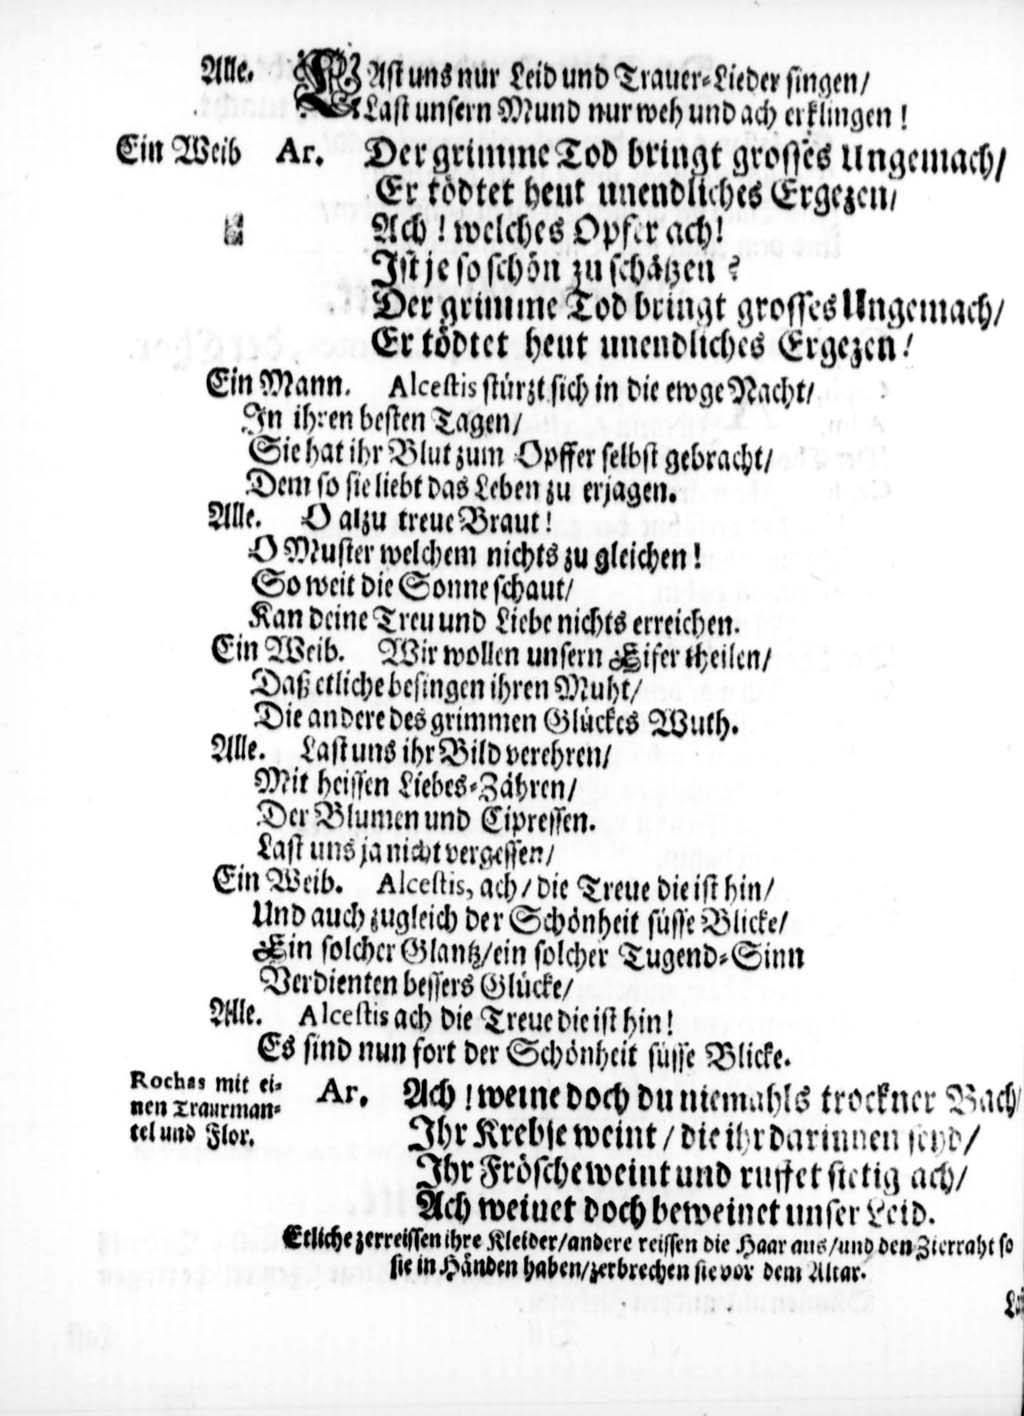 Alle. LAst uns nur Leid und Trauer-Lieder singen/
Last unsern Mund nur weh und ach erklingen!
Ein Weib Ar. Der grimme Tod bringt grosses Ungemach/
Er tödtet heut unendliches Ergezen/
Ach! welches Opfer ach!
Ist je so schön zu schätzen?
Der grimme Tod bringt grosses Ungemach/
Er tödtet heut unendliches Ergezen!
Ein Mann. Alcestis stürzt sich in die ewge Nacht/
In ihren besten Tagen/
Sie hat ihr Blut zum Opffer selbst gebracht/
Dem so sie liebt das Leben zu erjagen.
Alle. O alzu treue Braut!
O Muster welchem nichts zu gleichen!
So weit die Sonne schaut/
Kan deine Treu und Liebe nichts erreichen.
Ein Weib. Wir wollen unsern Eifer theilen/
Daß etliche besingen ihren Muht/
Die andere des grimmen Glückes Wuth.
Alle. Last uns ihr Bild verehren/
Mit heissen Liebes-Zähren/
Der Blumen und Cipressen.
Last uns ja nicht vergessen/
Ein Weib. Alcestis, ach/ die Treue die ist hin/
Und auch zugleich der Schönheit süsse Blicke/
Ein solcher Glantz/ein solcher Tugend-Sinn
Verdienten bessers Glücke/
Alle. Alcestis ach die Treue die ist hin!
Es sind nun fort der Schönheit süsse Blicke.
Rochas mit ei-
nen Traurman-
tel und Flor.
Ar. Ach! weine doch du niemahls trockner Bach/
Ihr Krebse weint/ die ihr darinnen seyd/
Ihr Frösche weint und ruffet stetig ach/
Ach weinet doch beweinet unser Leid.
Etliche zerreissen ihre Kleider/andere reissen die Haar aus/und den Zierraht so
sie in Händen haben/zerbrechen sie vor dem Altar.